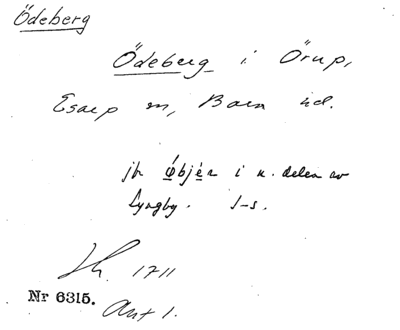 Ödeberg
Ödeberg i Örup,
Esarp sn, Bara hd.
jfr i n. delen av
Lyngby. I-s.
Jb. 1711
Nr 6315. Ant 1.